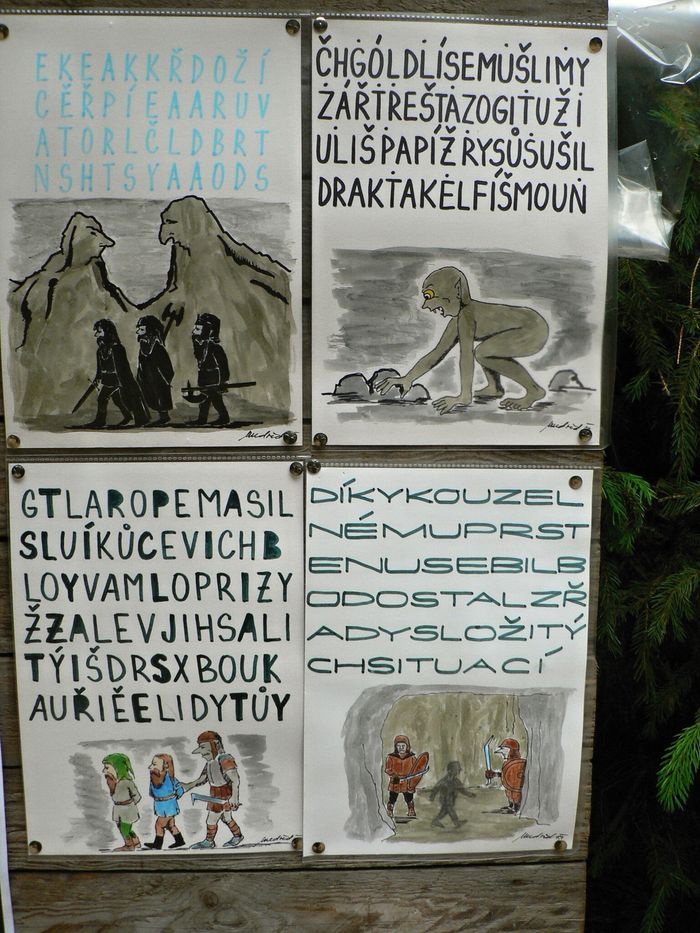 EKEAKKŘDOŽÍ
CĚŘPÍEAARUV
ATORLČLDBRT
NSHTSYAAODS
ČHGÓLDLÍSEMUŠLIMY
ZÁŘTREŠTAZOGITUŽI
ULIŠPAPÍŽRYSŮSUŠIL
DRAKTAKELFÍŠMOUN
GTLAROPEMASIL
SLUÍKŮCEVICHB
LOYVAMLOPRIZY
ŽZALEVJIHSALI
TÝIŠDRSXBOUK
AUŘIĚELIDYTŮY
DÍKYKOUZEL
NÉMUPRST
ENUSEBILB
ODOSTALZŘ
ADYSLOŽITÝ
CHSITUACÍ